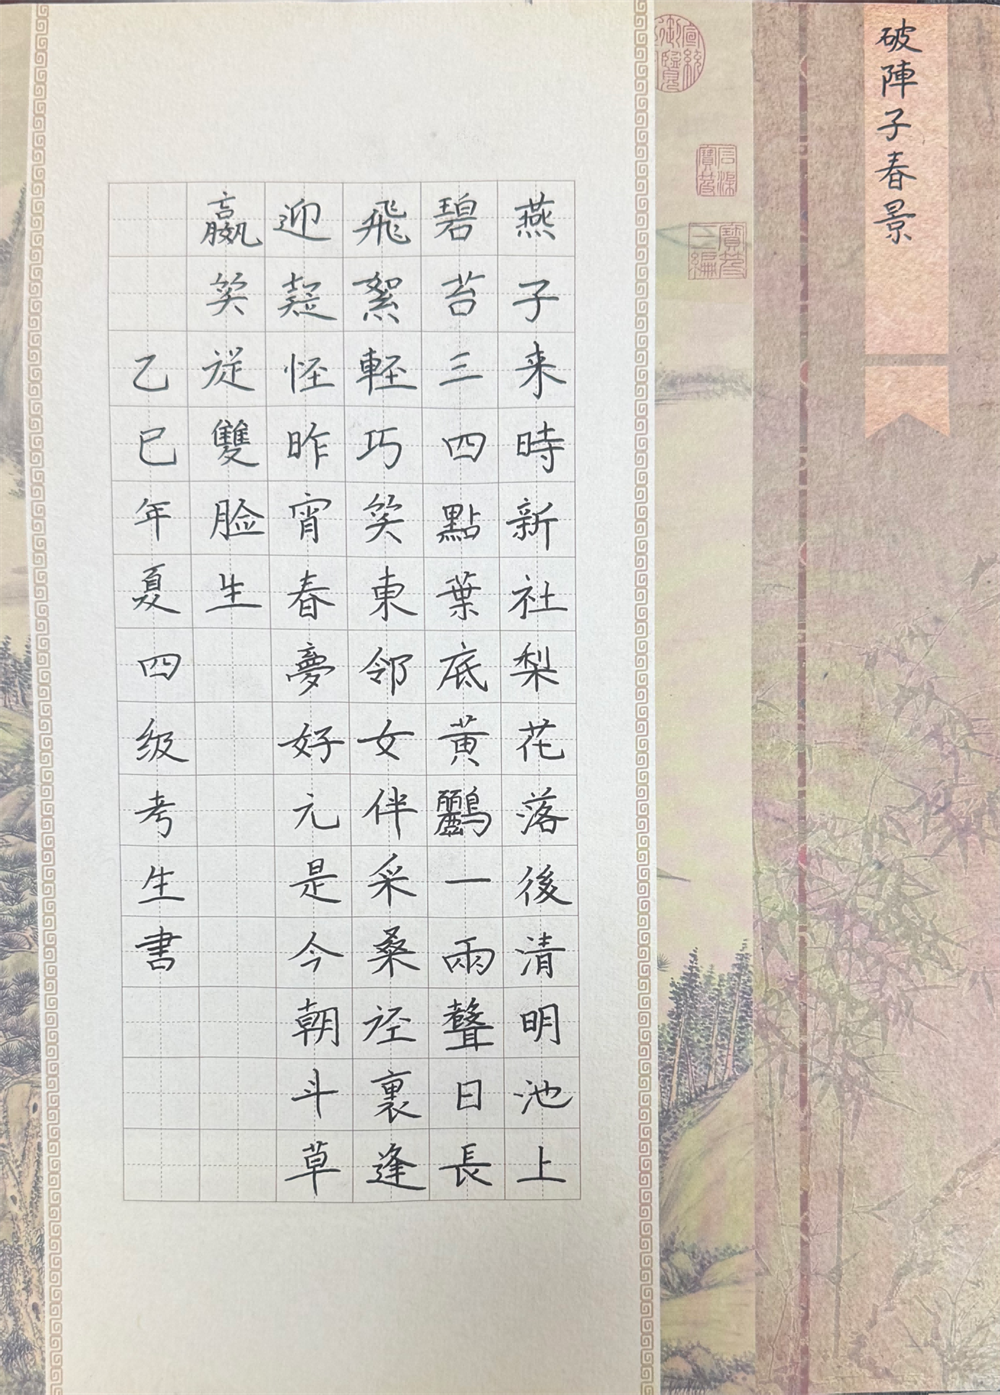 破陣子春景
燕子来時新社梨花落後清明池上
碧苔三四點葉底黄鸝一兩聲日長
飛絮輕巧笑東邻女伴采桑徑裏逢
迎疑怪昨宵春夢好元是今朝斗草
贏笑従雙脸生
乙巳年夏四级考生書